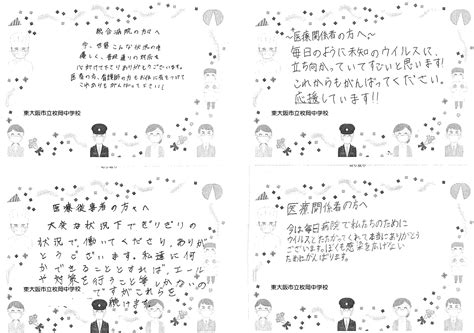 総合病院の方々へ
今、世界こんな状況の中
優しく、普段通りの対応を
心がけて下さりありがとうございます。
医者の方、看護師の方もお体に気をつけて
これからもがんばって下さい!!
東大阪市立枚岡中学校
〜医療関係者の方へ〜
毎日のように未知のウイルスに、
立ち向かっていてすごいと思います!
これからもがんばってください。
応援しています!!
東大阪市立枚岡中学校
医療従事者の方々へ
大変な状況下でぎりぎりの
状況で、働いてくださり、ありが
とうございます。私達に何
かできることとすれば、エール
や対策を行うこと等しかないの
ですがこれらを
続けます。
医療関係者の方へ
今は毎日病院で私たちのために
ウイルスとたたかってくれて本当にありがとう
ございます。ぼくも感染を広げない
ためにがんばります。
東大阪市立枚岡中学校